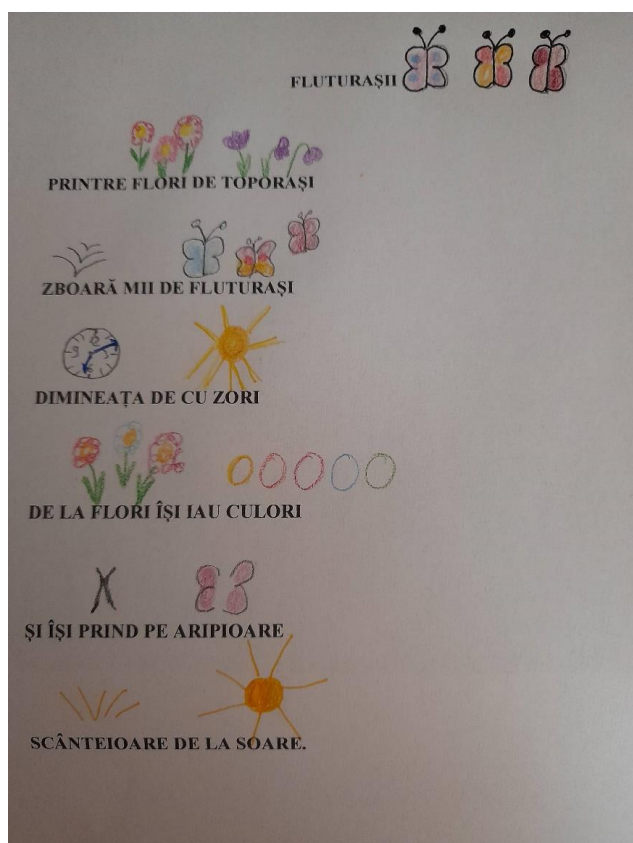 FLUTURAȘII
PRINTRE FLORI DE TOPORAȘI
ZBOARĂ MII DE FLUTURAȘI
DIMINEAȚA DE CU ZORI
DE LA FLORI ÎȘI IAU CULORI
ȘI ÎȘI PRIND PE ARIPIOARE
SCÂNTEIOARE DE LA SOARE.